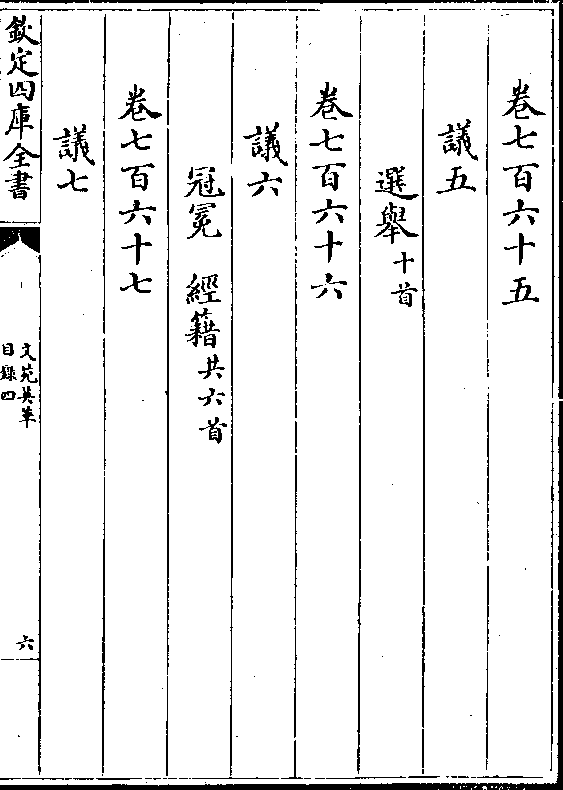 卷七百六十五
議五
選舉十首
卷七百六十六
議六
冠冕　經籍共六首
卷七百六十七
議七
欽定四庫全書
文苑英華
目錄四
六